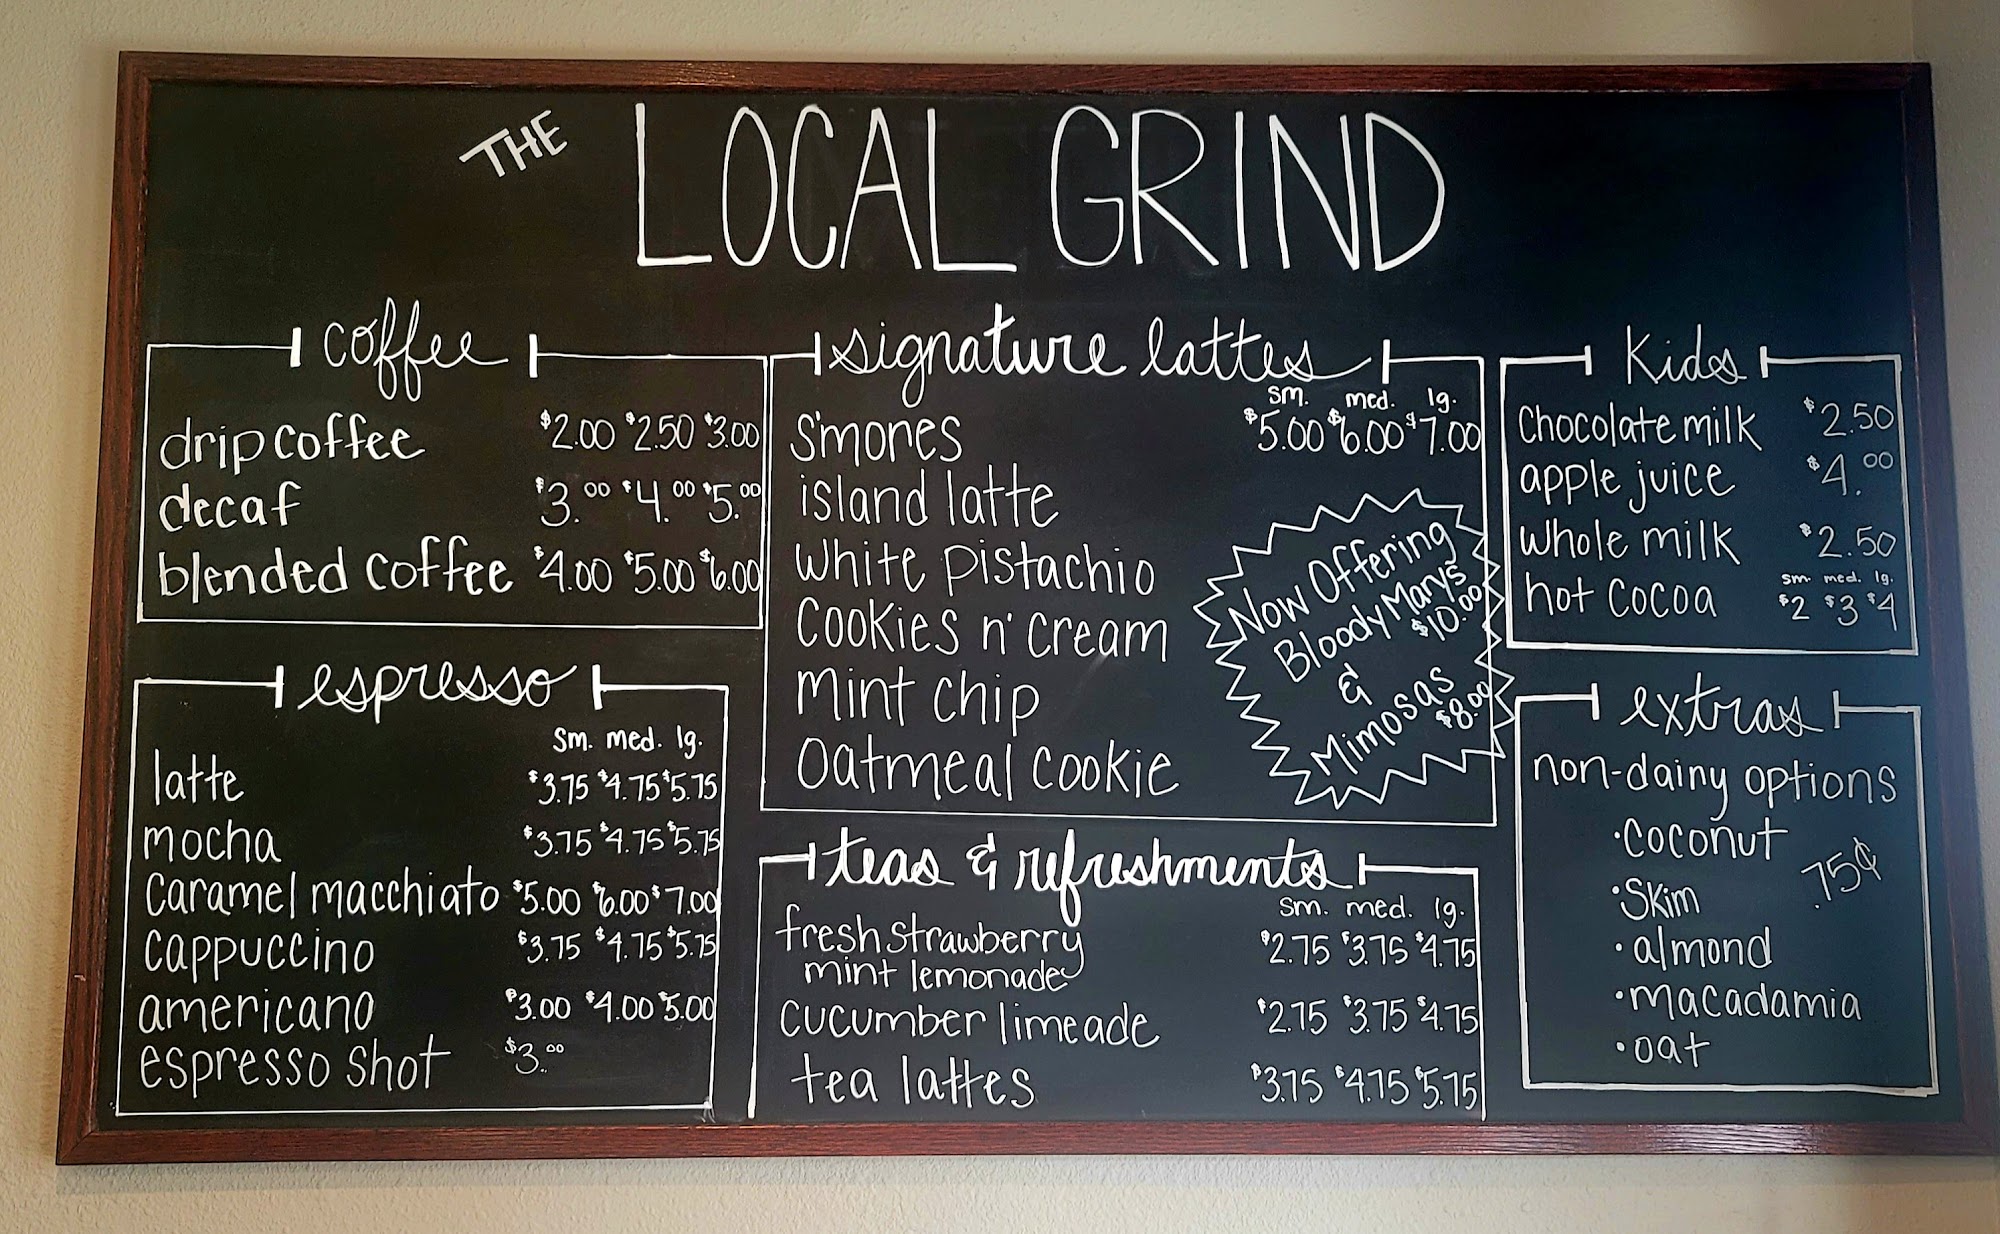 THE LOCAL GRIND
coffee
drip coffee $2.00 $2.50 $3.00
decaf $3.00 $4.00 $5.00
blended coffee $4.00 $5.00 $6.00
espresso
sm. med. lg.
latte $3.75 $4.75 $5.75
mocha $3.75 $4.75 $5.75
caramel macchiato $5.00 $6.00 $7.00
cappuccino $3.75 $4.75 $5.75
americano $3.00 $4.00 $5.00
espresso shot $3.00
signature lattes
sm. med. lg.
S'mores $5.00 $6.00 $7.00
island latte
white pistachio
cookies n' cream
mint chip
oatmeal cookie
Now Offering
Bloody Marys
$10.00
&
Mimosas
$8.00
teas & refreshments
sm. med. lg.
fresh strawberry $2.75 $3.75 $4.75
mint lemonade
cucumber limeade $2.75 $3.75 $4.75
tea lattes $3.75 $4.75 $5.75
Kids
chocolate milk $2.50
apple juice $4.00
whole milk $2.50
sm. med. lg.
hot cocoa $2 $3 $4
extras
non-dairy options
•coconut
•skim
.75¢
•almond
•macadamia
•oat